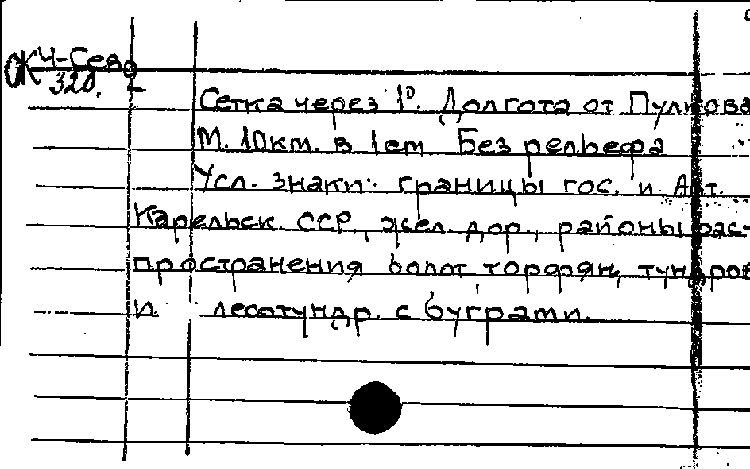 К4-Сев
320.
2
Сетка через 1°. Долгота от Пулкова
М. 10км. в 1см Без рельефа
Усл. знаки: границы гос. и Авт.
Карельск. ССР, жел. дор., районы рас-
пространения болот торфян, тундров
и лесотундр. с буграми.